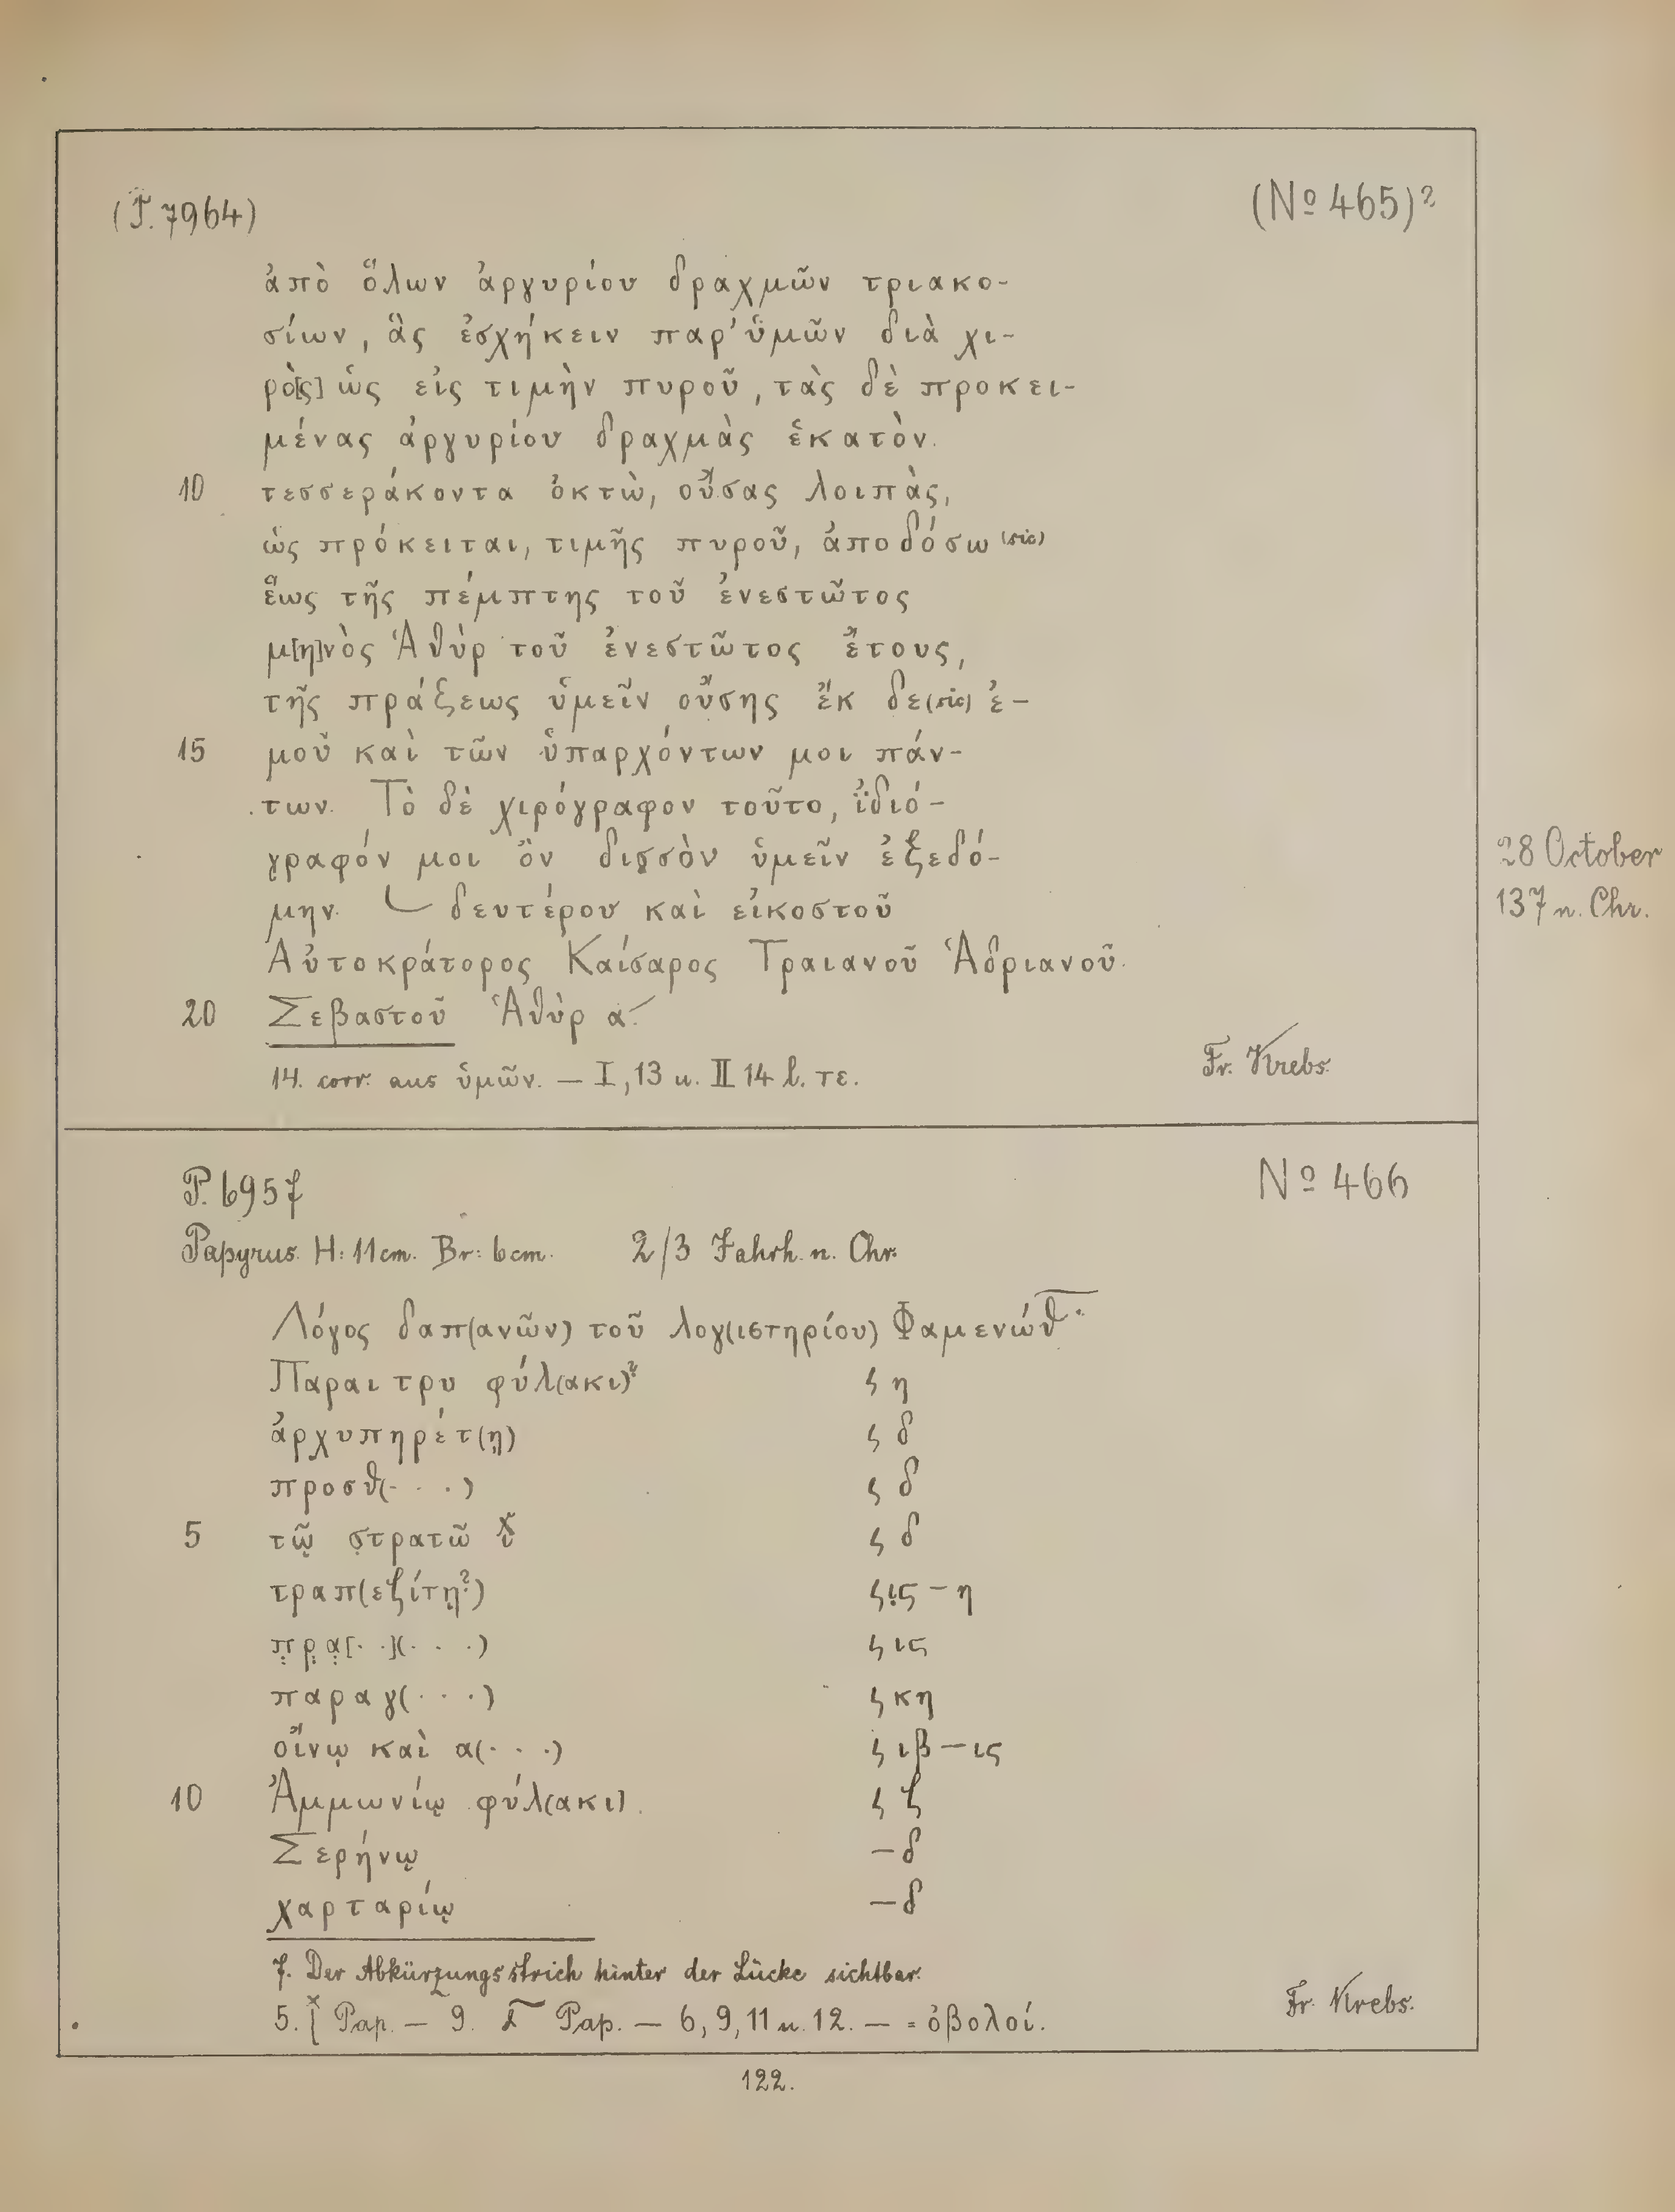 (P. 7964) (No 465)²
ἀπὸ ὅλων ἀργυρίου δραχμῶν τριακο-
σίων, ἃς ἐσχήκειν παρ' ὑμῶν διὰ χι-
ρὸ[ς] ὡς εἰς τιμὴν πυροῦ, τὰς δὲ προκει-
μένας ἀργυρίου δραχμὰς ἑκατὸν
10 τεσσεράκοντα ὀκτὼ, οὔσας λοιπὰς,
ὡς πρόκειται, τιμῆς πυροῦ, ἀποδόσω (sic)
ἕως τῆς πέμπτης τοῦ ἐνεστῶτος
μ[η]νὸς Ἁθὺρ τοῦ ἐνεστῶτος ἔτους,
τῆς πράξεως ὑμεῖν οὔσης ἔκ δε (sic) ἐ-
15 μοῦ καὶ τῶν ὑπαρχόντων μοι πάν-
των. Τὸ δὲ χιρόγραφον τοῦτο, ἰ̈διό-
γραφόν μοι ὂν δισσὸν ὑμεῖν ἐξεδό-
μην. δευτέρου καὶ εἰκοστοῦ
28 October
137 n. Chr.
Αὐτοκράτορος Καίσαρος Τραιανοῦ Ἁδριανοῦ
20 Σεβαστοῦ Ἁθὺρ α.
14. corr. aus ὑμῶν. — I, 13 u. II 14 l. τε.
Fr. Krebs.
P. 6957 No 466
Papyrus. H: 11 cm. Br: 6 cm. 2/3 Jahrh. n. Chr.
Λόγος δαπ(ανῶν) τοῦ λογ(ιστηρίου) Φαμενώθ
Παραι τρυ φύλ(ακι)? ϛ η
ἀρχυπηρέτ(ῃ) ϛ δ
προσθ(· · ·) ϛ δ
5 τῷ στρατῶ ϛ δ
τραπ(εζίτῃ?) ϛ ις — η
π̣ρ̣α̣[· ·](· · ·) ϛ ις
παραγ(· · ·) ϛ κη
οἴνῳ καὶ α(· · ·) ϛ ιβ — ις
10 Ἀμμωνίῳ φύλ(ακι) ϛ ζ
Σερήνῳ — δ
χαρταρίῳ — δ
7. Der Abkürzungsstrich hinter der Lücke sichtbar.
5. Pap. — 9. Pap. — 6, 9, 11 u. 12. — = ὀβολοί.
Fr. Krebs.
122.